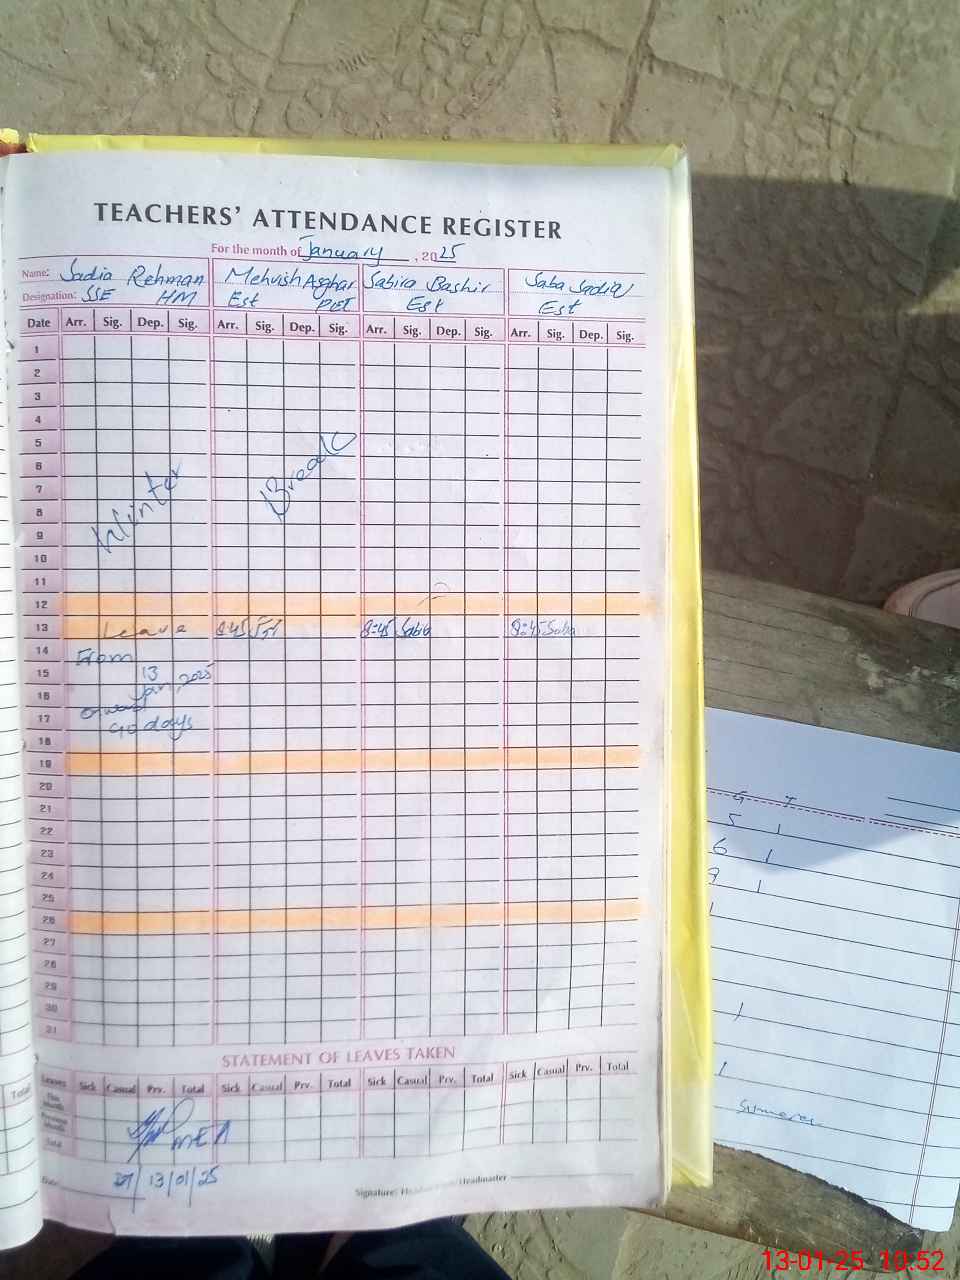 TEACHERS' ATTENDANCE REGISTER
For the month of January, 2025
Name: Sadia Rehman Mehvish Asghar Sabira Bashir Saba Sadia
Designation: SSE HM Est PET Est Est
Date Arr. Sig. Dep. Sig. Arr. Sig. Dep. Sig. Arr. Sig. Dep. Sig. Arr. Sig. Dep. Sig.
1
2
3
4
5
6
7
8
Winter Break
9
10
11
12
13 Leave 8:45 8:45 Sabir 8:45 Saba
14 From
15 13
16 Jan, 2025
onward
17 90 days
18
19
20
21
22
23
24
25
26
27
28
29
30
31
STATEMENT OF LEAVES TAKEN
Leaves Sick Casual Prv. Total Sick Casual Prv. Total Sick Casual Prv. Total Sick Casual Prv. Total
This Month
Previous Month
Total
MEA
Date: 13/01/25
Signature: Headmaster
Total
G T
5 1
6 1
9 1
1
1
1
13-01-25 10:52